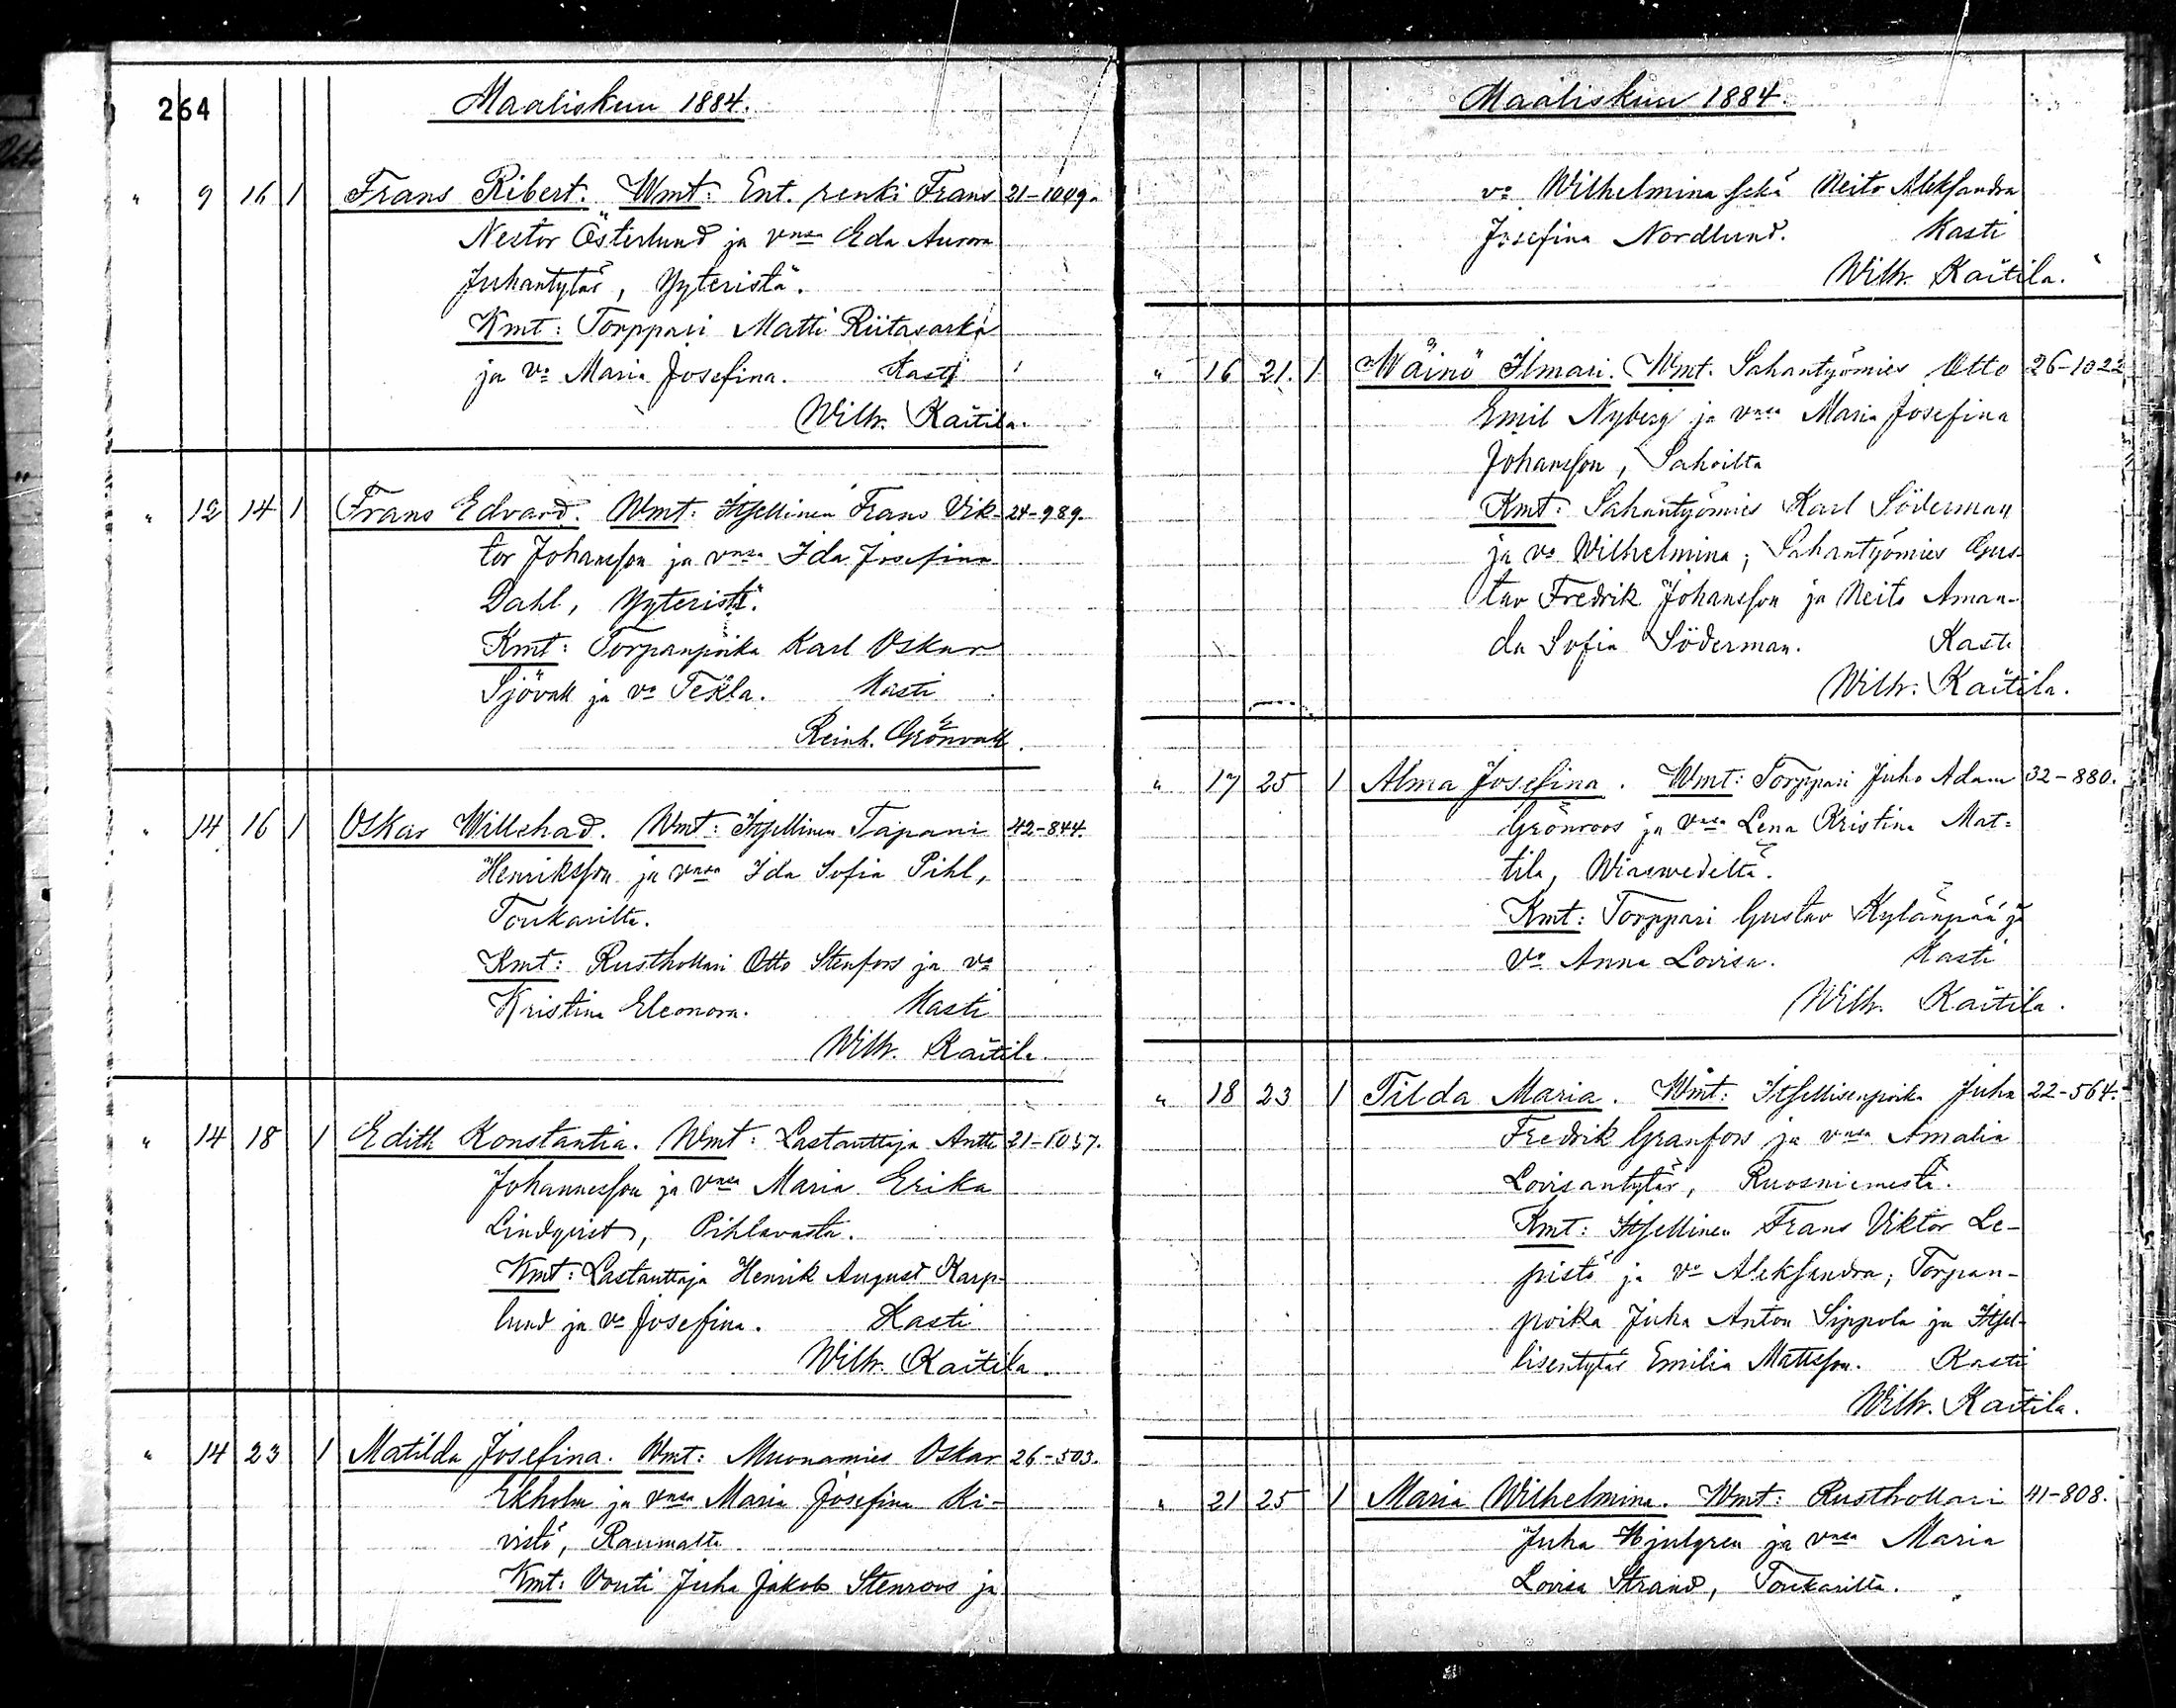 264
Maaliskuu 1884.
" 9 16 1 Frans Ribert. Wmt: Ent. renki Frans 21-1009.
Nestor Österlund ja vnsa Eda Aurora
Juhantytär, Yyteristä.
Kmt: Torppari Matti Riitasarka
ja vo Maria Josefina. Kasti
Wilh. Kaitila.
" 12 14 1 Frans Edvard. Wmt: Itsellinen Frans Vik- 24-989.
tor Johansson ja vnsa Ida Josefina
Dahl, Yyteristä.
Kmt: Torpanpoika Karl Oskar
Sjövall ja vo Tekla. Kasti
Reinh. Grönvall.
" 14 16 1 Oskar Willehad. Wmt: Itsellinen Tapani 42-844.
Henriksson ja vnsa Ida Sofia Pihl,
Toukarilta.
Kmt: Rusthollari Otto Stenfors ja vo
Kristina Eleonora. Kasti
Wilh. Kaitila.
" 14 18 1 Edith Konstantia. Wmt: Lastauttaja Antti 21-1037.
Johannesson ja vnsa Maria Erika
Lindqvist, Pihlavasta.
Kmt: Lastauttaja Henrik August Karp-
lund ja vo Josefina. Kasti
Wilh. Kaitila.
" 14 23 1 Matilda Josefina. Wmt: Muonamies Oskar 26-503.
Ekholm ja vnsa Maria Josefina Ki-
vistö, Raumalta
Kmt: Vouti Juha Jakob Stenroos ja
Maaliskuu 1884.
vo Wilhelmina sekä Neito Aleksandra
Josefina Nordlund. Kasti
Wilh. Kaitila.
" 16 21. 1 Wäinö Ilmari. Wmt. Sahantyömies Otto 26-1022
Emil Nyberg ja vnsa Maria Josefina
Johansson, Sahoilta
Kmt: Sahantyömies Karl Söderman
ja vo Wilhelmina; Sahantyömies Gus-
tav Fredrik Johansson ja Neito Aman-
da Sofia Söderman. Kasti
Wilh. Kaitila.
" 17 25 1 Alma Josefina. Wmt: Torppari Juho Adam 32-880.
Grönroos ja vnsa Lena Kristina Mat=
tila, Wiaswedeltä.
Kmt: Torppari Gustav Kylänpää ja
vo Anna Lovisa. Kasti
Wilh. Kaitila.
" 18 23 1 Tilda Maria. Wmt: Itsellisenpoika Juha 22-564.
Fredrik Granfors ja vnsa Amalia
Lovisantytär, Ruosniemestä.
Kmt: Itsellinen Frans Viktor Le-
pistö ja vo Aleksandra; Torpan-
poika Juha Anton Sippola ja Itsel-
lisentytär Emilia Mattsson. Kasti
Wilh. Kaitila.
" 21 25 1 Maria Wilhelmina. Wmt: Rusthollari 41-808.
Juha Hjulgren ja vnsa Maria
Lovisa Strand, Toukarilta.